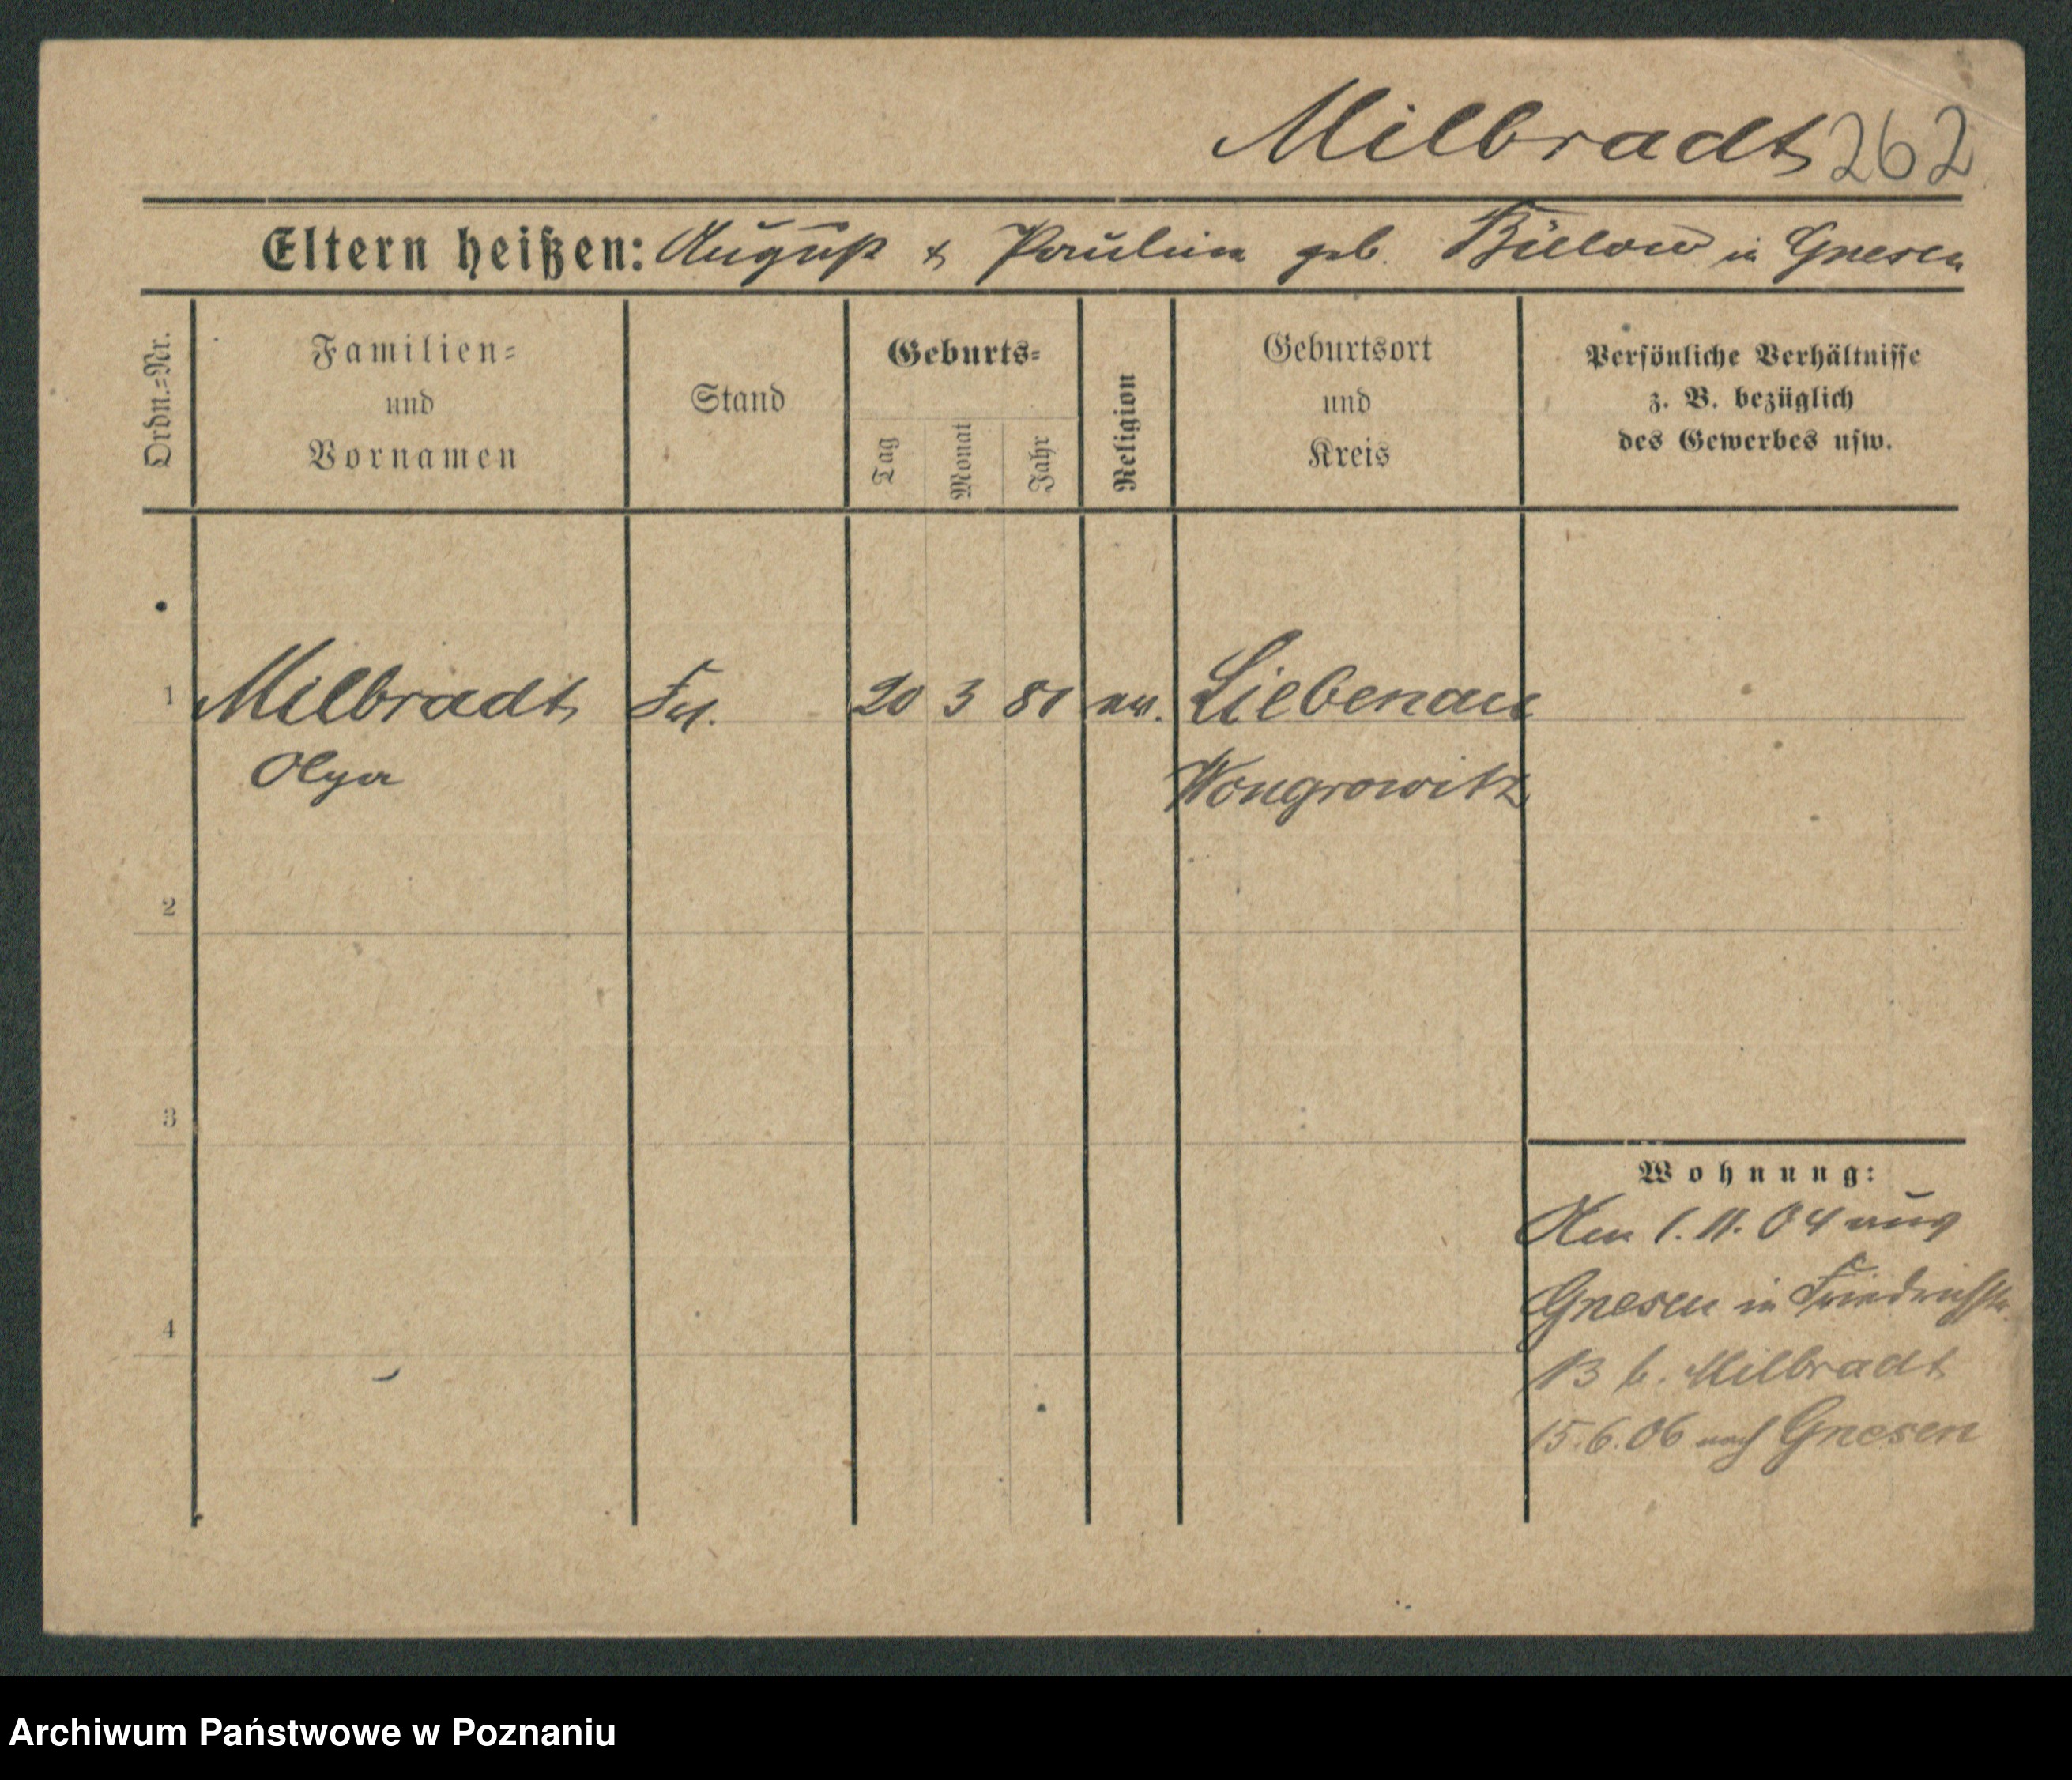 Milbradt 262
Eltern heißen: August & Paulina geb. Bülow in Gnesen
Ordn.=Nr.
Familien=
und
Vornamen
Stand
Geburts=
Tag
Monat
Jahr
Religion
Geburtsort
und
Kreis
Persönliche Verhältnisse
z. B. bezüglich
des Gewerbes usw.
1 Milbradt 20 3 Liebenau
Olga Wongrowitz
2
3
4
Wohnung:
1. 11. 04 aus
Gnesen in Friedrichstr.
13 b. Milbradt
15.6.06 nach Gnesen
Archiwum Państwowe w Poznaniu